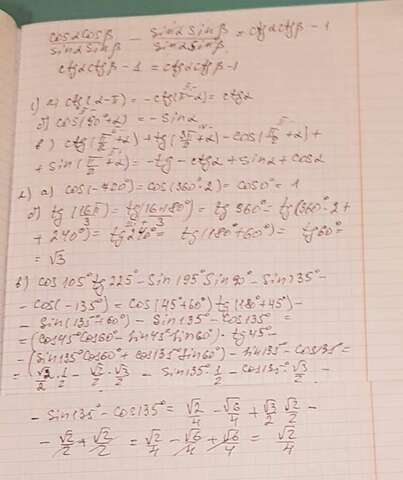 cosαcosβ/sinαsinβ − sinαsinβ/sinαsinβ = ctgαctgβ − 1
ctgαctgβ − 1 = ctgαctgβ − 1
1) а) ctg(α−π) = −ctg(π−α) = ctgα
б) cos(90°+α) = −sinα
в) ctg(π/2+α) + tg(3π/2+α) − cos(π/2+α) +
+ sin(π/2+α) = −tg − ctgα + sinα + cosα
2. а) cos(−720°) = cos(360°·2) = cos0° = 1
б) tg(16π/3) = tg(16·180°/3) = tg 960° = tg(360°·2 +
+ 240°) = tg240° = tg(180°+60°) = tg60° =
= √3
в) cos105°tg225° − sin195°sin90° − sin135° −
− cos(−135°) = cos(45°+60°)tg(180°+45°) −
− sin(135°+60°) − sin135° − cos135° =
= (cos45°cos60° − sin45°sin60°)·tg45° −
− (sin135°cos60° + cos135°sin60°) − sin135 − cos135 =
= √2/2·1/2 − √2/2·√3/2 − sin135°·1/2 − cos135°·√3/2 −
− sin135° − cos135° = √2/4 − √6/4 + √3/2 √2/2 −
− √2/2 + √2/2 = √2/4 − √6/4 + √6/4 = √2/4